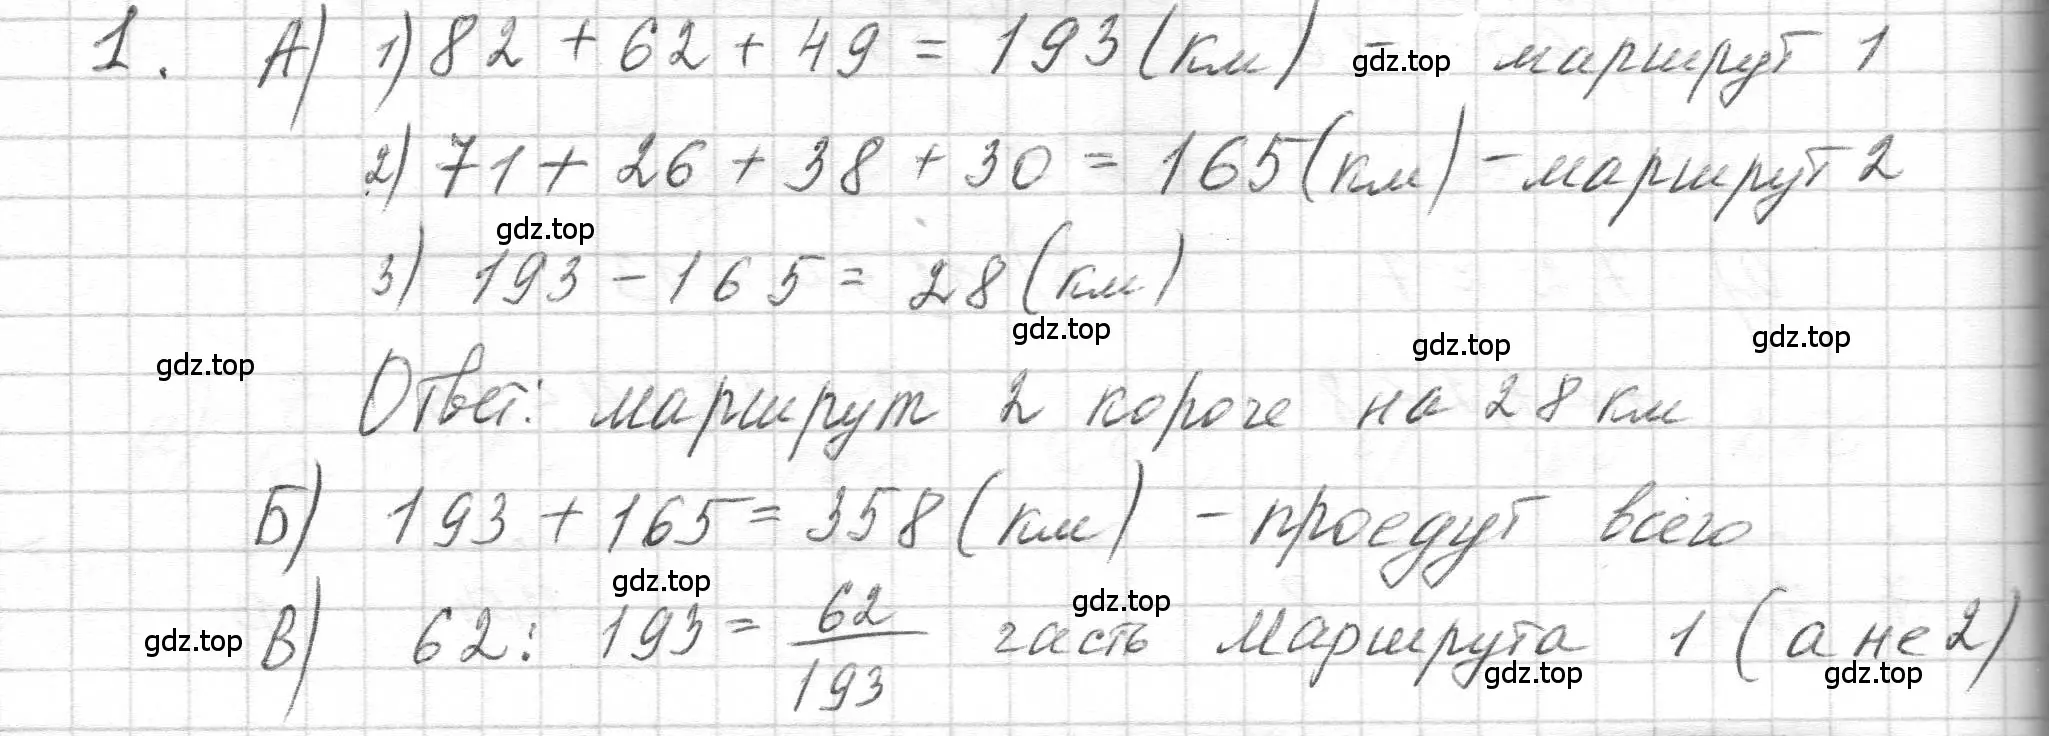 1. А) 1) 82 + 62 + 49 = 193 (км) - маршрут 1
gdz.top
2) 71 + 26 + 38 + 30 = 165 (км) - маршрут 2
gdz.top
3) 193 - 165 = 28 (км)
gdz.top
gdz.top
gdz.top
gdz.top
Ответ: маршрут 2 короче на 28 км
Б) 193 + 165 = 358 (км) - проедут всего
gdz.top
gdz.top
gdz.top
В) 62 : 193 = 62/193 часть маршрута 1 (а не 2)
gdz.top
gdz.top